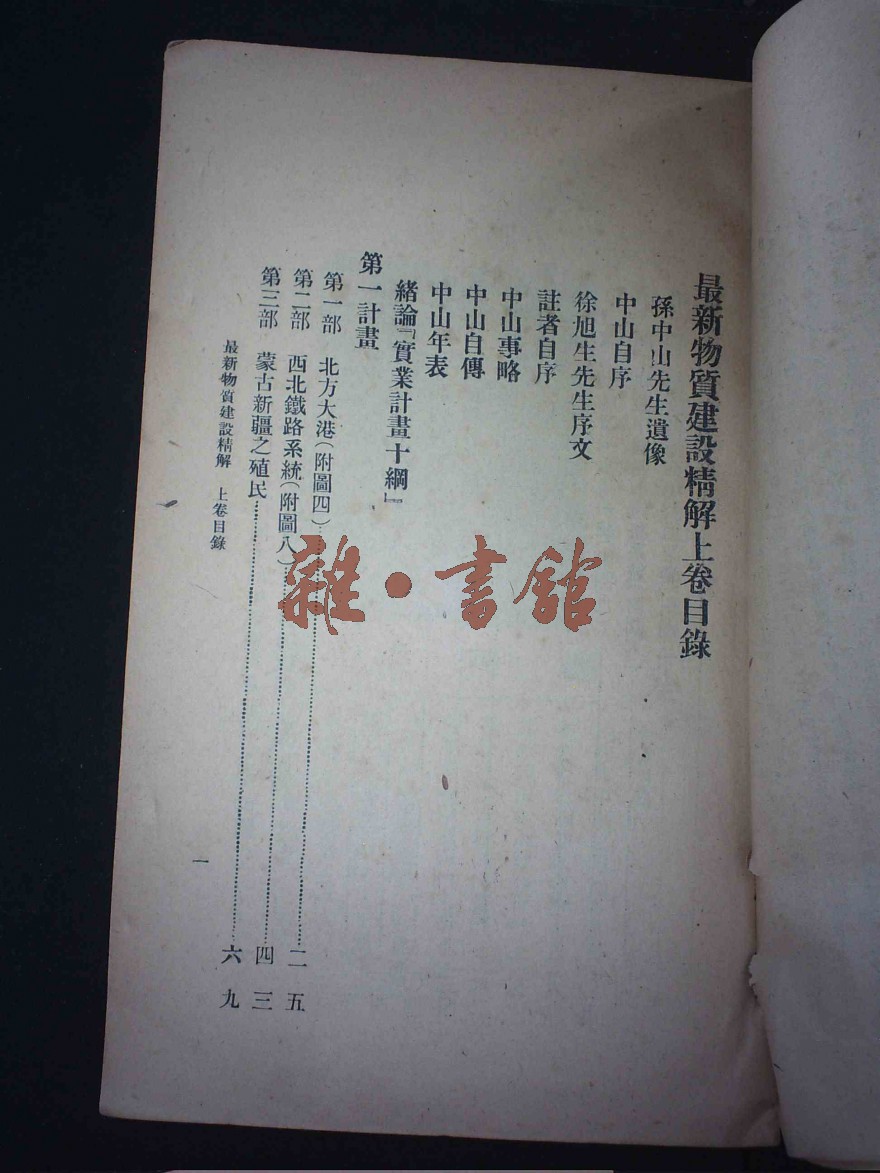 最新物質建設精解上卷目錄
孫中山先生遺像
中山自序
徐旭生先生序文
註者自序
中山事略
中山自傳
中山年表
緒論『實業計畫十綱』
第一計畫
第一部 北方大港(附圖四)⋯⋯⋯⋯二五
第二部 西北鐵路系統(附圖八)⋯⋯⋯⋯四三
第三部 蒙古新疆之殖民⋯⋯⋯⋯六九
最新物質建設精解 上卷目錄 一
雜·書館